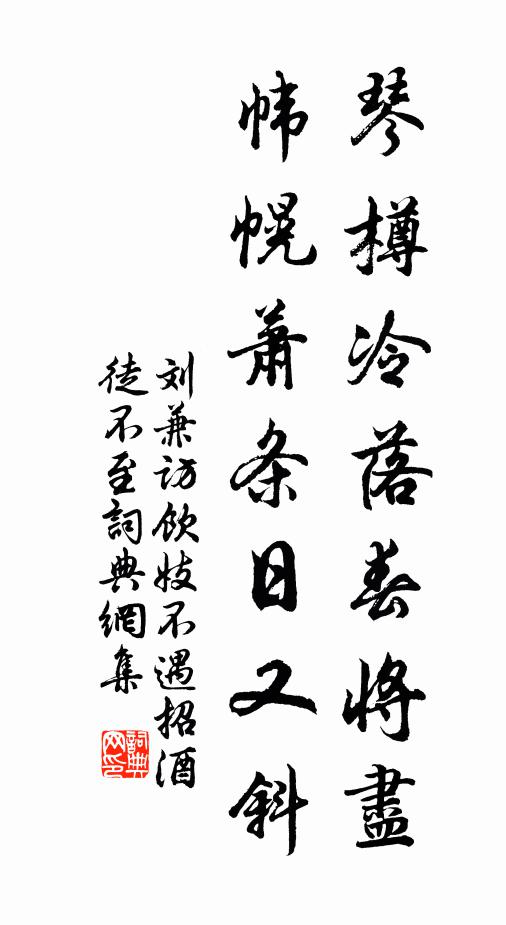 琴樽冷落春將盡
幃幌蕭条日又斜
刘兼访飲妓不遇招酒
徒不至詞典網集
詞典网印